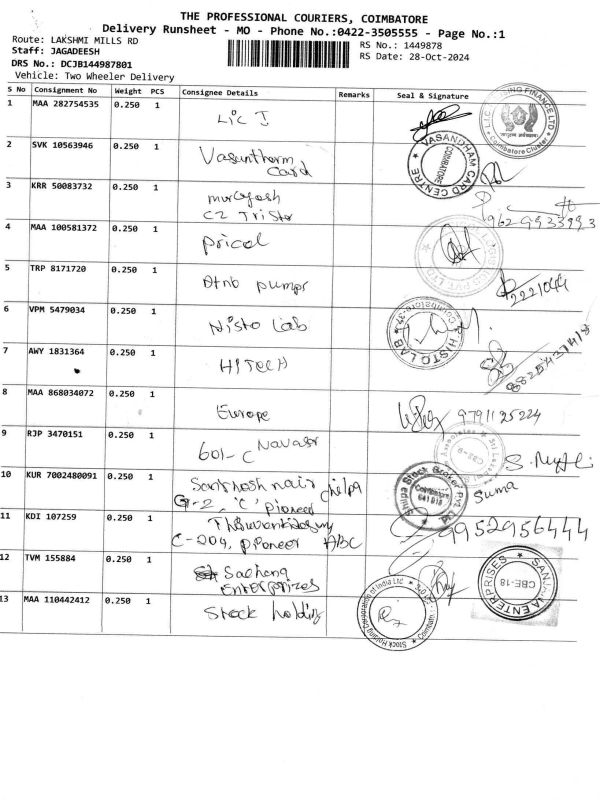 THE PROFESSIONAL COURIERS, COIMBATORE
Delivery Runsheet - MO - Phone No.:0422-3505555 - Page No.:1
Route: LAKSHMI MILLS RD
RS No.: 1449878
Staff: JAGADEESH
RS Date: 28-Oct-2024
DRS No.: DCJB144987801
Vehicle: Two Wheeler Delivery
S No Consignment No Weight PCS Consignee Details Remarks Seal & Signature
1 MAA 282754535 0.250 1 LIC
2 SVK 10563946 0.250 1 Vasantham
Card
VASANDHAM CARD CENTRE COIMBATORE
3 KRR 50083732 0.250 1
C2 Tristar
9629933993
4 MAA 100581372 0.250 1 pricol
5 TRP 8171720 0.250 1 pumps
2221044
6 VPM 5479034 0.250 1 Histo Lab
HISTO LAB Coimbatore-37
7 AWY 1831364 0.250 1 HITECH
8 MAA 868034072 0.250 1 Europe
9791125224
9 RJP 3470151 0.250 1 601-C
10 KUR 7002480091 0.250 1 Santhosh nair
G-2, 'C' pioneer
Suma
11 KDI 107259 0.250 1
C-204, pioneer ABC
9952956444
12 TVM 155884 0.250 1
Enterprizes
ENTERPRISES CBE-18
13 MAA 110442412 0.250 1 Stock holding
Stock Holding Corporation of India Ltd